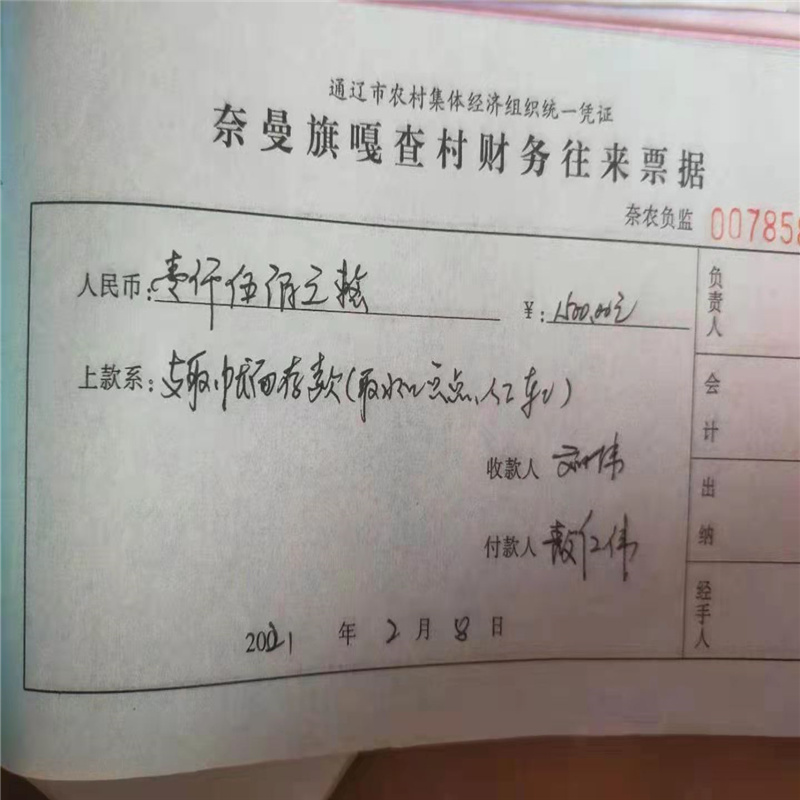 通辽市农村集体经济组织统一凭证
奈曼旗嘎查村财务往来票据
奈农负监 00785
人民币：壹仟伍佰元整 ￥：1500.00元
上款系：支取 存款（取水 点、人工车工）
收款人 伟
付款人 敖仁伟
2021 年 2 月 8 日
负责人
会计
出纳
经手人